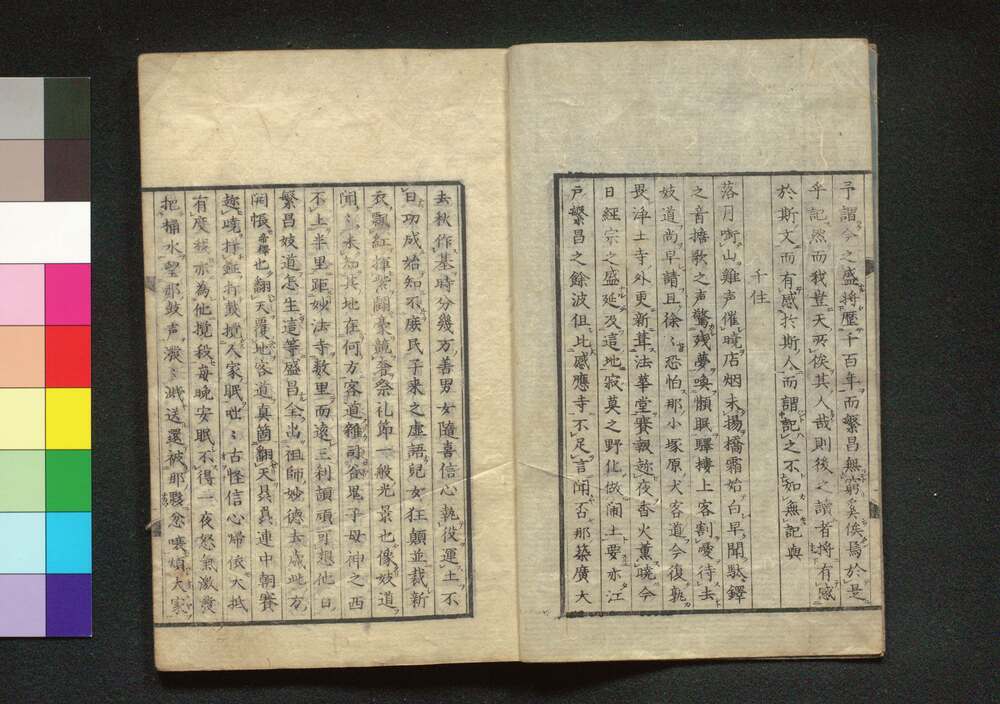 予謂今之盛将歴千百年而繁昌無窮矣俟焉於是
乎記然而我豈天而俟其人哉則後之讀者将有感
於斯文而有感於斯人而謂記之不如無記与
千住
落月啣山雞声催暁店烟未揚橋霜始白早聞駄鐸
之音担歌之声驚残夢喚頽眠驛楼上客割愛待去
妓道尚早請且徐〻恐怕那小塚原犬客道今復孰
畏浄土寺外更新葺法華堂賽報趂夜香火薫暁今
日経宗之盛延及這地寂莫之野化做閙土要亦江
戸繁昌之餘波但比感應寺不足言聞否那築廣大
去秋作基時分幾万善男女随喜信心執役運土不
日功成始知不廢民子来之虚語児女狂顛並裁新
衣飄紅揮紫闘豪競奢祭礼節一般光景也像妓道
聞〻未知其地在何方客道雑司谷鬼子母神之西
不上半里距妙法寺数里而遠三利頡頏可想他日
繁昌妓道怎生這等盛昌全出祖師妙徳去歳此方
開帳翻天覆地客道真箇翻天具具連中朝賽
趂暁拝鉦打鼓攪人家眠咄〻古怪信心帰依大抵
有度我亦為他攪我毎晩安眠不得一夜怒気激発
把桶水望那鼓声溌〻濺送還被那夥忿嚷煩大家